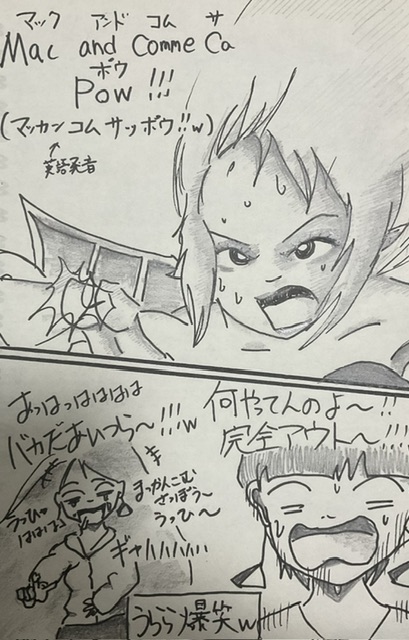 マック アンド コム サ
Mac and Comme Ca
ボウ
Pow !!!
(マッカンコムサッボウ!!w)
↑
英語発音
何やってんのよ〜!!
完全アウト〜!!!
あっはっはははは
バカだあいつら〜!!!w
まっかんこむ
さっぽう〜
うっひ〜
うっひゃ
ははは
ギャハハハハハ
うらら爆笑w